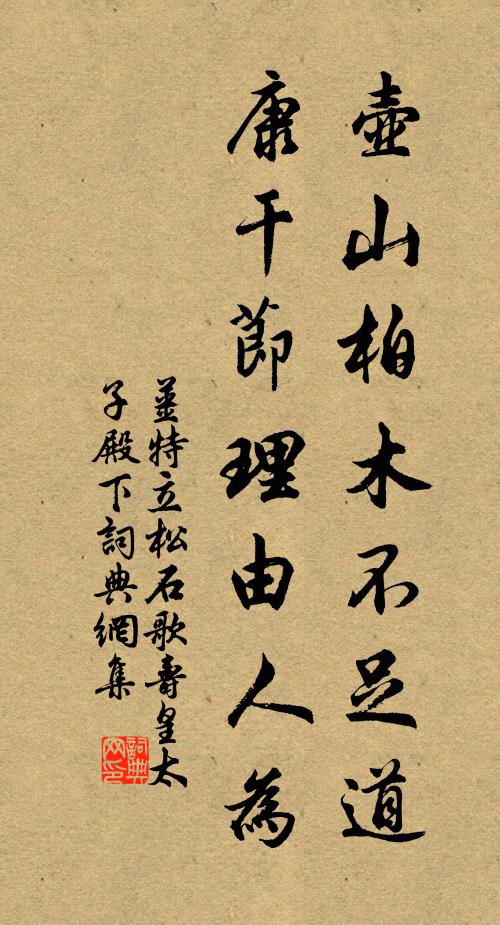 壺山柏木不足道
康干節理由人為
姜特立松石歌壽皇太
子殿下詞典網集
詞典網印